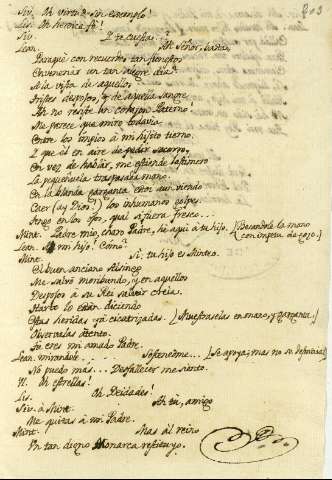 Siv. Oh virtud sin exemplo!
Lis. Oh heroica fé!
Siv. Y te cuesta..
Lean. Ah Señor, basta,
Porqué con recuerdos tan funestos
Envenenar un tan alegre dia.
A la vista de aquellos
tristes despojos, y de aquella sangre
Ah no resiste un corazon Paterno!
Me parece que miro todavia
Entre los impios à mi hijito tierno.
Y que èl en aire de pedir socorro,
En vez de hablar, me estiende la
La pequeñuela traspasada mano.
En la blanda garganta creo aun viendo
Caer (ay Dios!) los inhumanos golpes.
tengo en los ojos, qual si fuera fresco...
Mint. Padre mio, charo Padre, hé aqui à tu hijo. [Besandole la mano
con impetu de gozo.]
Lean. mi hijo! Cómo?
Mint. Si; tu hijo es Minteo.
El buen anciano Alsingo
Me salvó moribundo, y en aquellos
Despojos à su Rei salvar creia.
Harto lo están diciendo
Estas heridas yá cicatrizadas. [Muestraselas en mano, y garganta.]
Observalas atento.
Tu eres mi amado Padre.
Lean. mirandole... Sosteneóme... [Se apoya, mas no se desmaya]
No puedo mas.. Desfallecer me siento.
Vl. Oh estrellas!
Lis. Oh Deidades!
Siv. à Mint. Ah tù, amigo
Me quitas à mi Padre.
Mint. Mas al reino
Un tan digno Monarca restituyo.